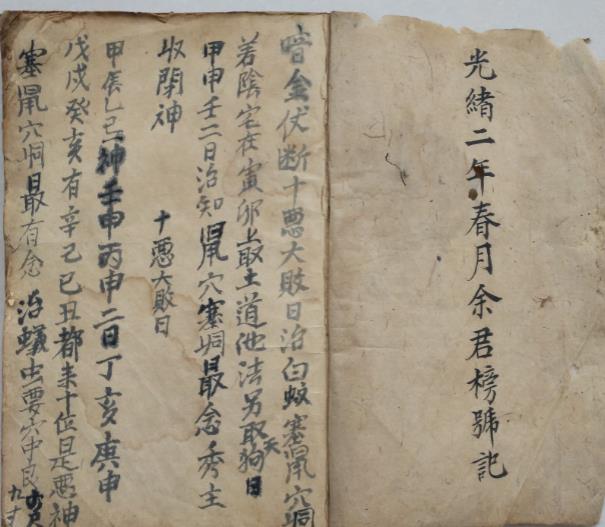 光緒二年春月余君榜號記
暗金伏断十悪大敗日治白蚁塞鼠穴垌
若陰宅在寅卯上最土道他法另取狗天日
甲申壬二日治知鼠穴塞垌最念秀主
收閉神　十悪大敗日
甲辰乙巳神壬申丙申二日丁亥庚申
戊戌癸亥有辛己巳丑都来十位是悪神
塞鼠穴垌最有念　治蟻虫要穴中良